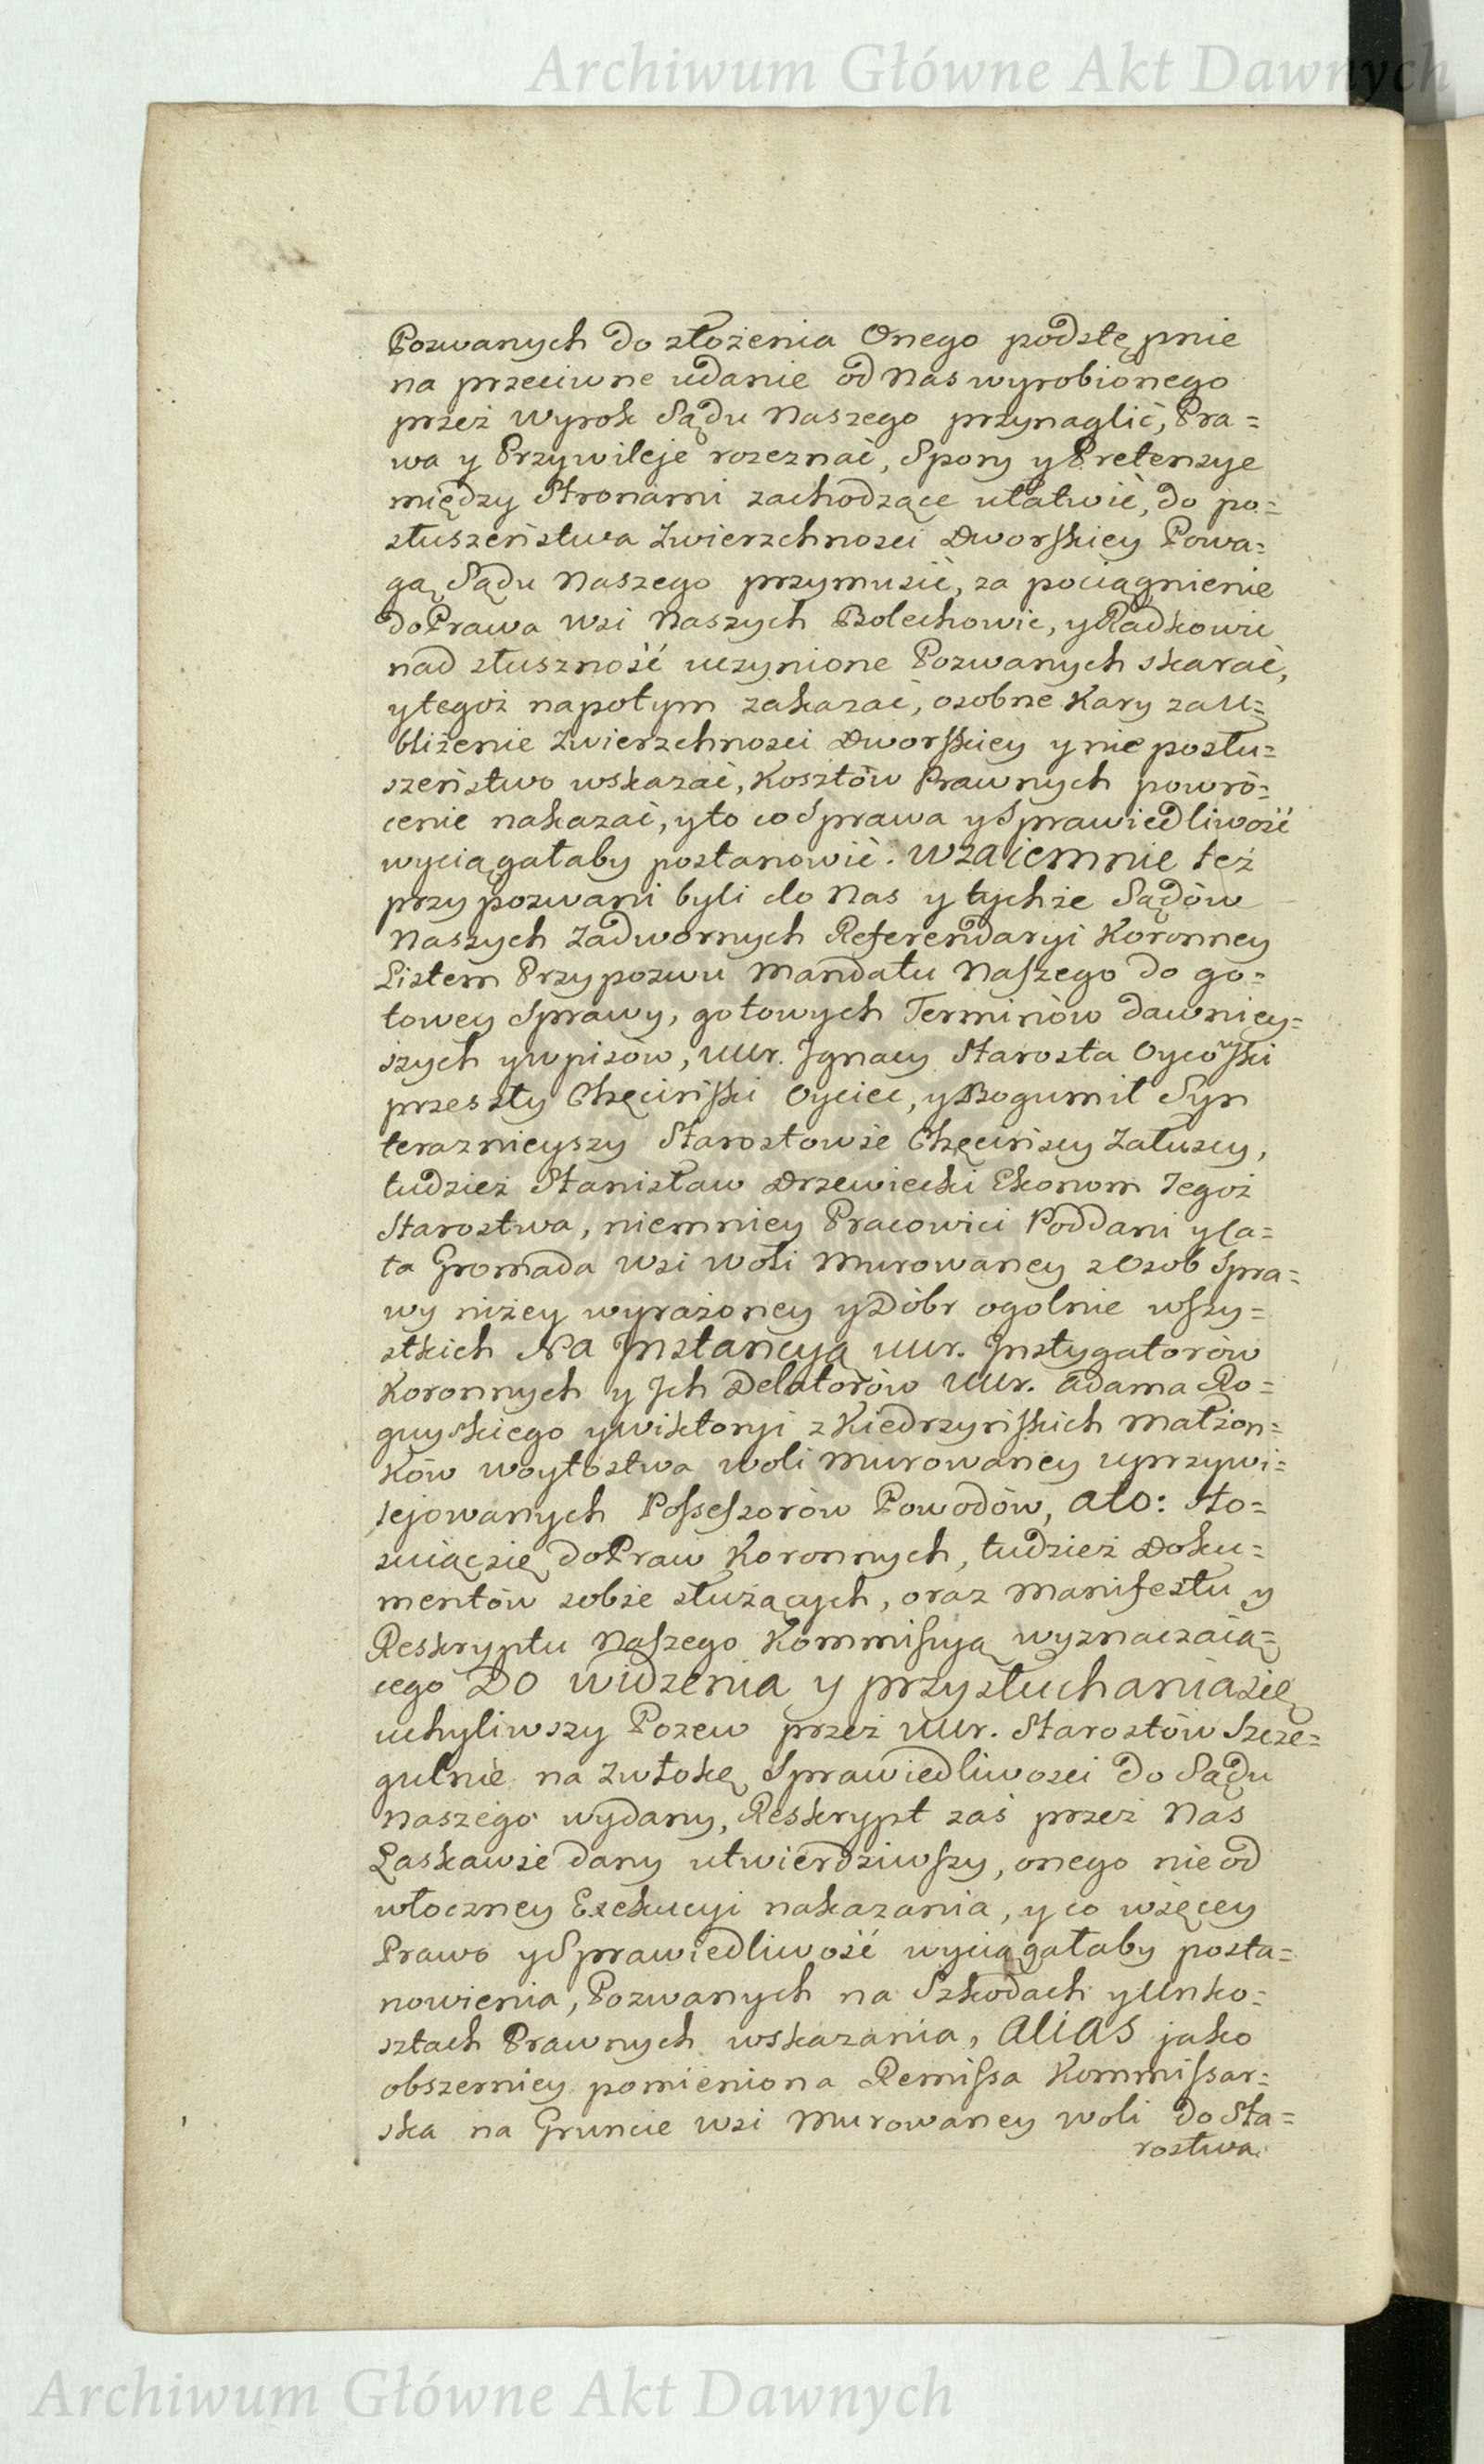 Archiwum Główne Akt Dawnych
Pozwanych do złożenia Onego podstępnie
na przeciwne udanie od Nas wyrobionego
przez Wyrok Sądu Naszego przynaglić, Pra=
wa y Przywileje rozeznać, Spory y Pretensye
między Stronami zachodzące ułatwić, do po=
słuszeństwa Zwierzchności Dworskiey Powa=
gą Sądu Naszego przymusić, za pociągnienie
do Prawa Wsi Naszych Bolechowic, y Radkowic
nad słuszność uczynione Pozwanych skarać,
y tegoż napotym zakazać, osobne Kary za U=
bliżenie Zwierzchności Dworskiey y nie posłu=
szeństwo wskazać, Kosztów Prawnych powró=
cenie nakazać, y to co Sprawa y Sprawiedliwość
wyciągałaby postanowić. Wzaiemnie też
przypozwani byli do Nas y tychże Sądów
Naszych Zadwornych Referendaryi Koronney
Listem Przypozwu Mandatu Naszego do go=
towey Sprawy, gotowych Terminów dawniey=
szych y wpisow, UUr. Jgnacy Starosta Oycowski
przeszły Chęciński Oyciec, y Bogumił Syn
teraznieyszy Starostowie Chęcińscy Załuscy,
tudzież Stanisław Drzewiecki Ekonom Tegoż
Starostwa, niemniey Pracowici Poddani y Ca=
ła Gromada Wsi Woli Murowaney z Osob Spra=
wy niżey wyrażoney y Dóbr ogolnie wszy=
stkich Na Jnstancyą UUr. Jnstygatorów
Koronnych y Jch Delatorów UUr. Adama Ro=
guyskiego y Wiktoryi z Kiedrzyńskich Małżon=
ków Woytostwa Woli Murowaney uprzywi=
lejowanych Possessorów Powodów, Ato: Sto=
suiąc się do Praw Koronnych, tudzież Doku=
mentów sobie służących, oraz Manifestu y
Reskryptu Naszego Kommissyą wyznaczaią=
cego Do widzenia y przysłuchania się
uchyliwszy Pozew przez UUr. Starostów Szcze=
gulnie na Zwłokę Sprawiedliwosci do Sądu
Naszego wydany, Reskrypt zaś przez Nas
Łaskawie dany utwierdziwszy, onego nie od
włoczney Exekucyi nakazania, y co więcey
Prawo y Sprawiedliwość wyciągałaby posta=
nowienia, Pozwanych na Szkodach y Unko=
sztach Prawnych wskazania, Alias jako
obszerniey pomieniona Remissa Kommissar=
ska na Gruncie Wsi Murowaney Woli do Sta=
rostwa
Archiwum Główne Akt Dawnych